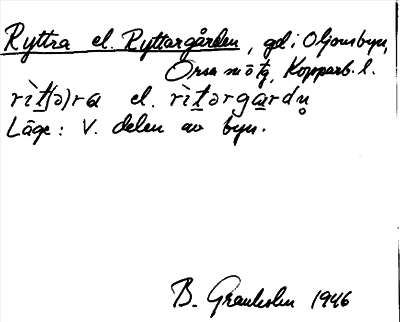 Ryttra el. Ryttargården, gd i Oljonsbyn,
Orsa sn o tg, Kopparb. l.
rìt(ə)ra el. rìtərgardn̥
Läge: V. delen av byn.
B. Granholm 1946